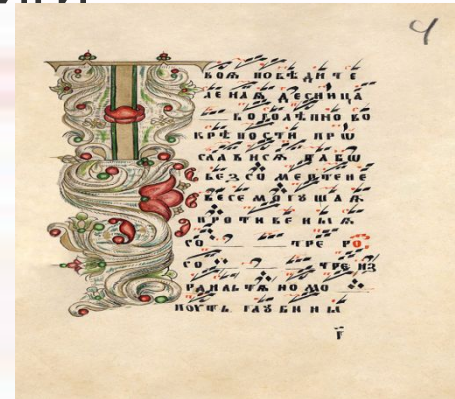 4
Т
воѧ побѣдите
ленаѧ десница
боголѣпно во
крѣпости прѡ
слависѧ табѡ
безсомертене
весемогꙋшаѧ
противеныѧ
со тре
со тре из
раильтѧномо
поуть глꙋбины